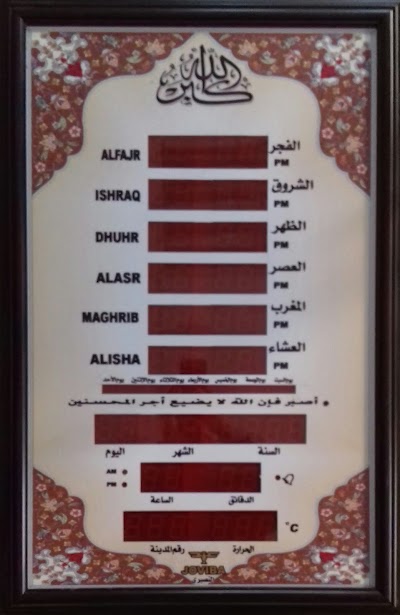 الله اكبر
ALFAJR الفجر
PM
ISHRAQ الشروق
PM
DHUHR الظهر
PM
ALASR العصر
PM
MAGHRIB المغرب
PM
ALISHA العشاء
PM
يوم الأحد يوم الاثنين يوم الثلاثاء يوم الأربعاء يوم الخميس يوم الجمعة يوم السبت
* أصبر فإن الله لا يضيع أجر المحسنين
اليوم الشهر السنة
AM
PM
الساعة الدقائق
°C
رقم المدينة الحرارة
JOVIRA